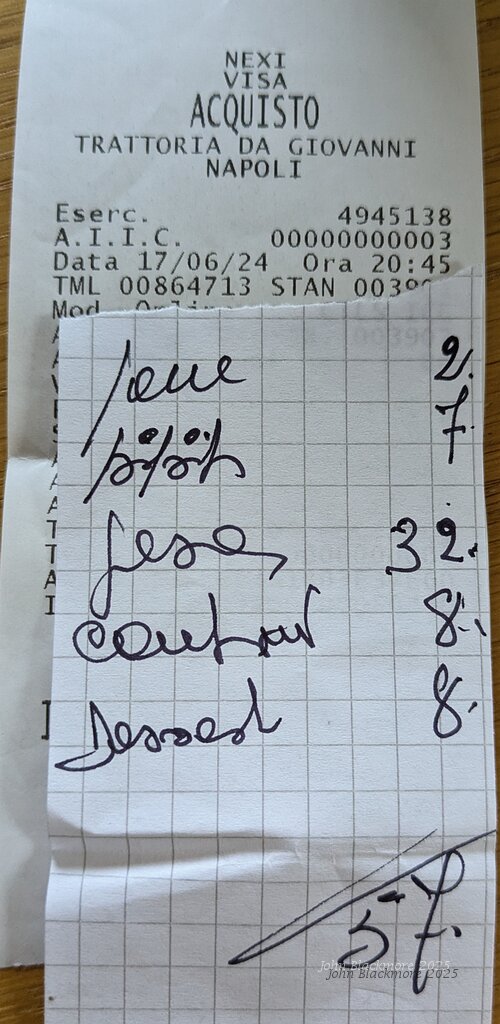 NEXI
VISA
ACQUISTO
TRATTORIA DA GIOVANNI
NAPOLI
Eserc. 4945138
A.I.I.C. 00000000003
Data 17/06/24 Ora 20:45
TML 00864713 STAN 00390
Mod. Online
pane 2.
7.
32.
contorni 8.
Dessert 8.
57.
John Blackmore 2025